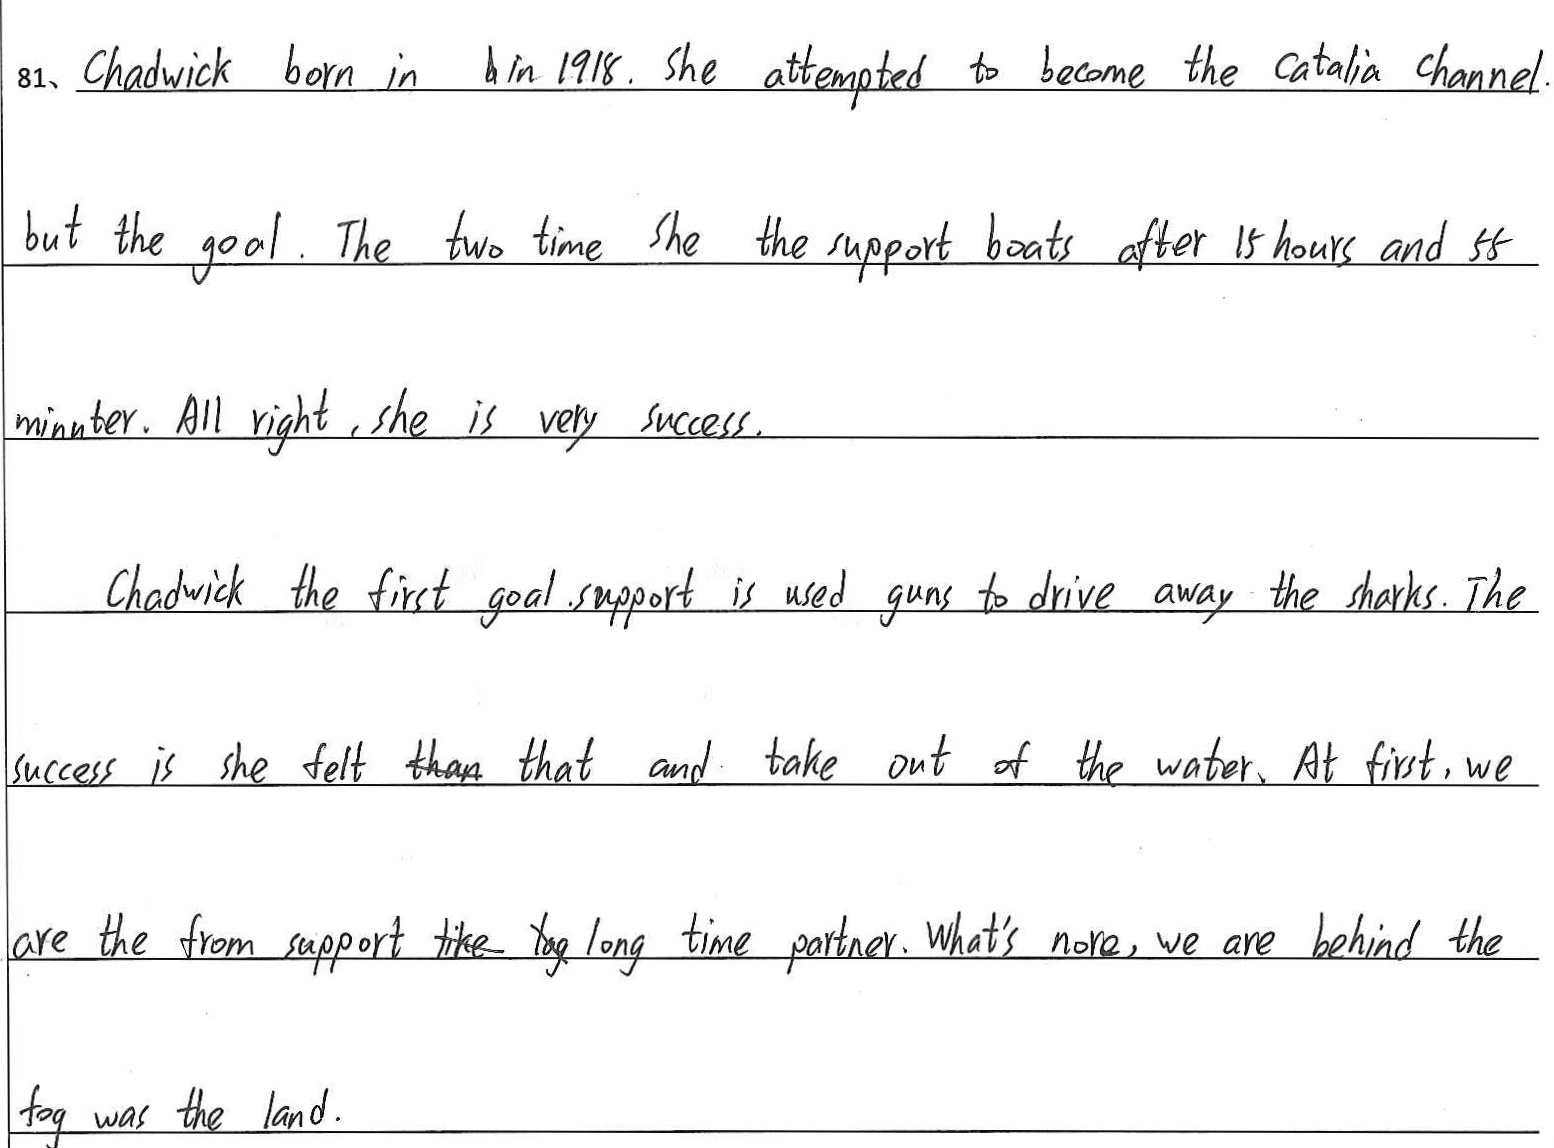 81、Chadwick born in in 1918. She attempted to become the Catalia Channel.
but the goal. The two time She the support boats after 15 hours and 55
minnter. All right, she is very success.
Chadwick the first goal.support is used guns to drive away the sharks. The
success is she felt than that and take out of the water. At first, we
are the from support like long time partner. What's nore, we are behind the
fog was the land.